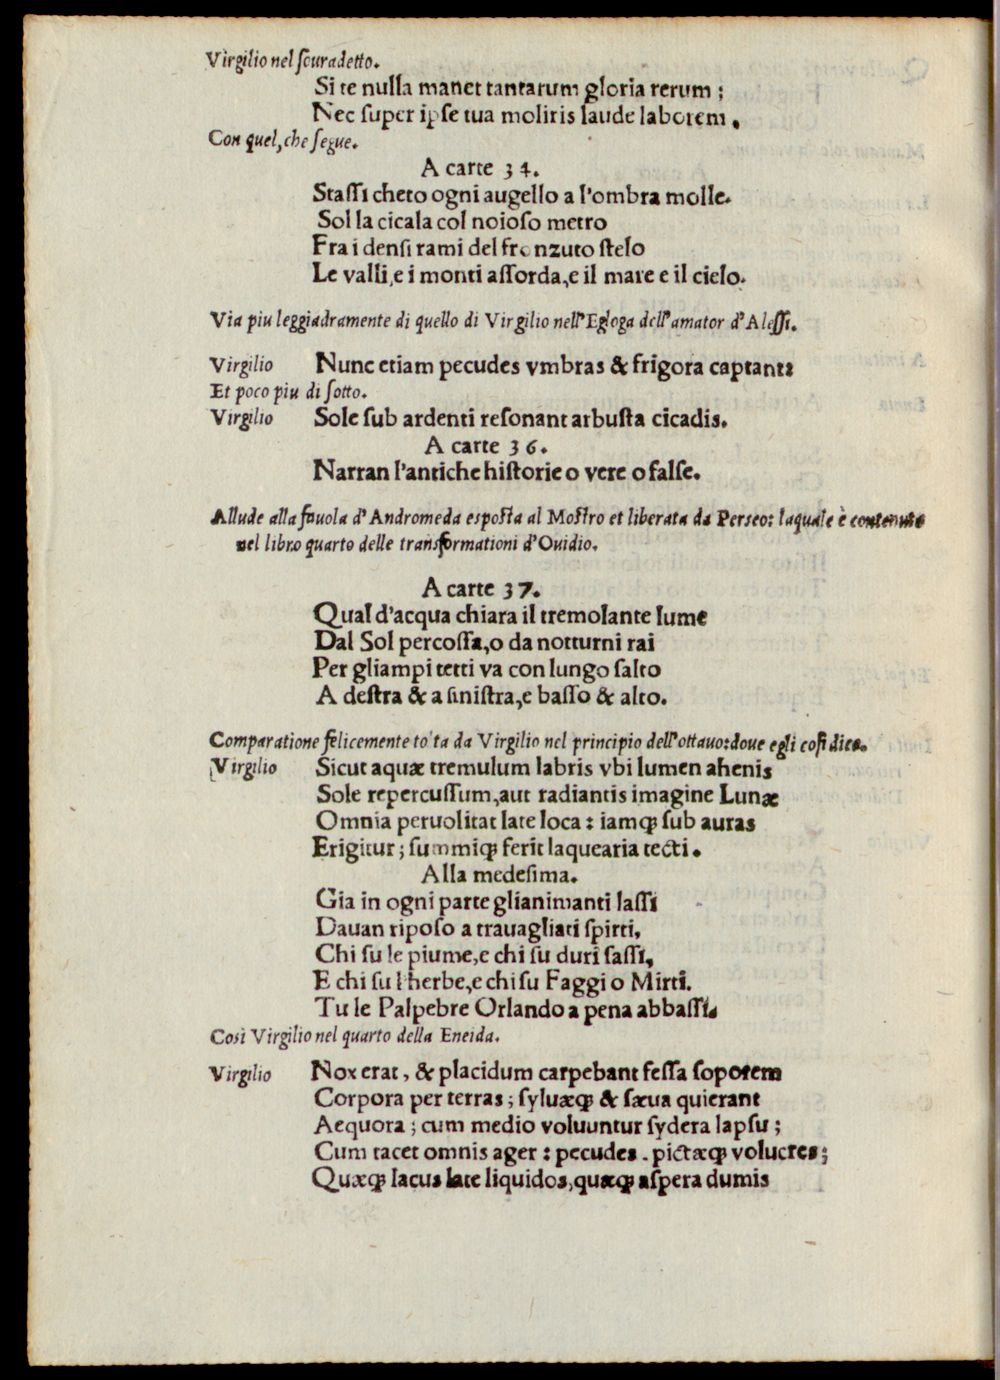 Virgilio nel souradetto.
Si te nulla manet tantarum gloria rerum;
Nec super ipse tua moliris laude laborem.
Con quel, che segue.
A carte 34.
Stassi cheto ogni augello a l'ombra molle.
Sol la cicala col noioso metro
Fra i densi rami del fronzuto stelo
Le valli, e i monti assorda, e il mare e il cielo.
Via piu leggiadramente di quello di Virgilio nell'Egloga dell'amator d'Alessi.
Virgilio Nunc etiam pecudes vmbras & frigora captant:
Et poco piu di sotto.
Virgilio Sole sub ardenti resonant arbusta cicadis.
A carte 36.
Narran l'antiche historie o vere o false.
Allude alla fauola d'Andromeda esposta al Mostro et liberata da Perseo: laquale è contenuta
nel libro quarto delle transformationi d'Ouidio.
A carte 37.
Qual d'acqua chiara il tremolante lume
Dal Sol percossa, o da notturni rai
Per gliampi tetti va con lungo salto
A destra & a sinistra, e basso & alto.
Comparatione felicemente tolta da Virgilio nel principio dell'ottauo: doue egli cosi dice.
Virgilio Sicut aquæ tremulum labris vbi lumen ahenis
Sole repercussum, aut radiantis imagine Lunæ
Omnia peruolitat late loca: iamq; sub auras
Erigitur; summiq; ferit laquearia tecti.
Alla medesima.
Gia in ogni parte glianimanti lassi
Dauan riposo a trauagliati spirti,
Chi su le piume, e chi su duri sassi,
E chi su l'herbe, e chi su Faggi o Mirti.
Tu le Palpebre Orlando a pena abbassi.
Così Virgilio nel quarto della Eneida.
Virgilio Nox erat, & placidum carpebant fessa soporem
Corpora per terras; syluæq; & sæua quierant
Aequora; cum medio voluuntur sydera lapsu;
Cum tacet omnis ager: pecudes. pictæq; volucres;
Quæq; lacus late liquidos, quæq; aspera dumis